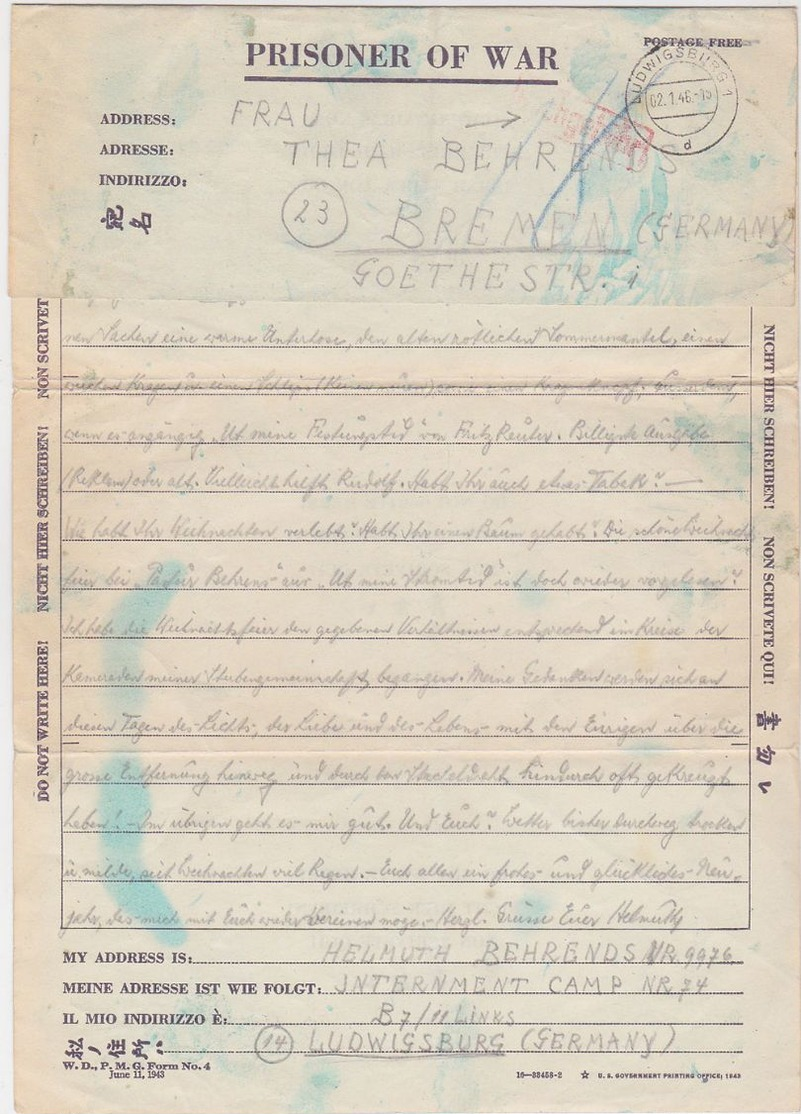 POSTAGE FREE
PRISONER OF WAR
LUDWIGSBURG 1
02.1.46.-15
d
ADDRESS: FRAU
ADRESSE: THEA BEHRENDS
INDIRIZZO:
宛名
(23) BREMEN (GERMANY)
GOETHESTR. 1
nen Sachen eine warme Unterhose, den alten rötlichen Sommermantel, einen
weichen Kragen einen Schlips (Keinen neuen) sowie einen Kragenknopf, Ausserdem,
wenn es angängig „Ut mine Festungstid" von Fritz Reuter. Billigste Ausgabe
(Reklam) oder alt. Vielleicht hilft Rudolf. Habt Ihr auch etwas Tabak? —
Wie habt Ihr Weihnachten verlebt? Habt Ihr einen Baum gehabt? Die schöne Weihnachts
feier bei „Pastür Behrens" aus „Ut mine Stromtid" ist doch wieder vorgelesen?
Ich habe die Weihnachtsfeier den gegebenen Verhältnissen entsprechend im Kreise der
Kameraden meiner Stubengemeinschaft begangen. Meine Gedanken werden sich an
diesen Tagen des Lichts, der Liebe und des Lebens mit den Eurigen über die
grosse Entfernung hinweg und durch den Stacheldraht hindurch oft gekreuzt
haben! - Im übrigen geht es mir gut. Und Euch? Wetter bisher durchweg trocken
u. milde, seit Weihnachten viel Regen. - Euch allen ein frohes und glückliches Neu-
jahr, das mich mit Euch wieder vereinen möge. - Herzl. Grüsse Euer Helmuth
NON SCRIVET
NICHT HIER SCHREIBEN!
DO NOT WRITE HERE!
NICHT HIER SCHREIBEN!
NON SCRIVETE QUI!
書勿レ
MY ADDRESS IS: HELMUTH BEHRENDS NR. 9976
MEINE ADRESSE IST WIE FOLGT: INTERNMENT CAMP NR 74
IL MIO INDIRIZZO È: B7/11 LINKS
私ノ住所: (14) LUDWIGSBURG (GERMANY)
W. D., P. M. G. Form No. 4
June 11, 1943
16—33458-2 ☆ U. S. GOVERNMENT PRINTING OFFICE: 1943